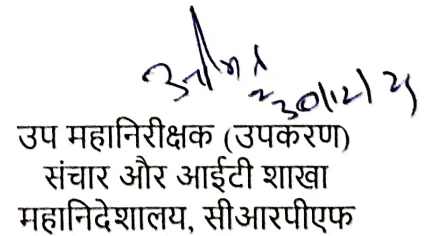 30/12/25
उप महानिरीक्षक (उपकरण)
संचार और आईटी शाखा
महानिदेशालय, सीआरपीएफ